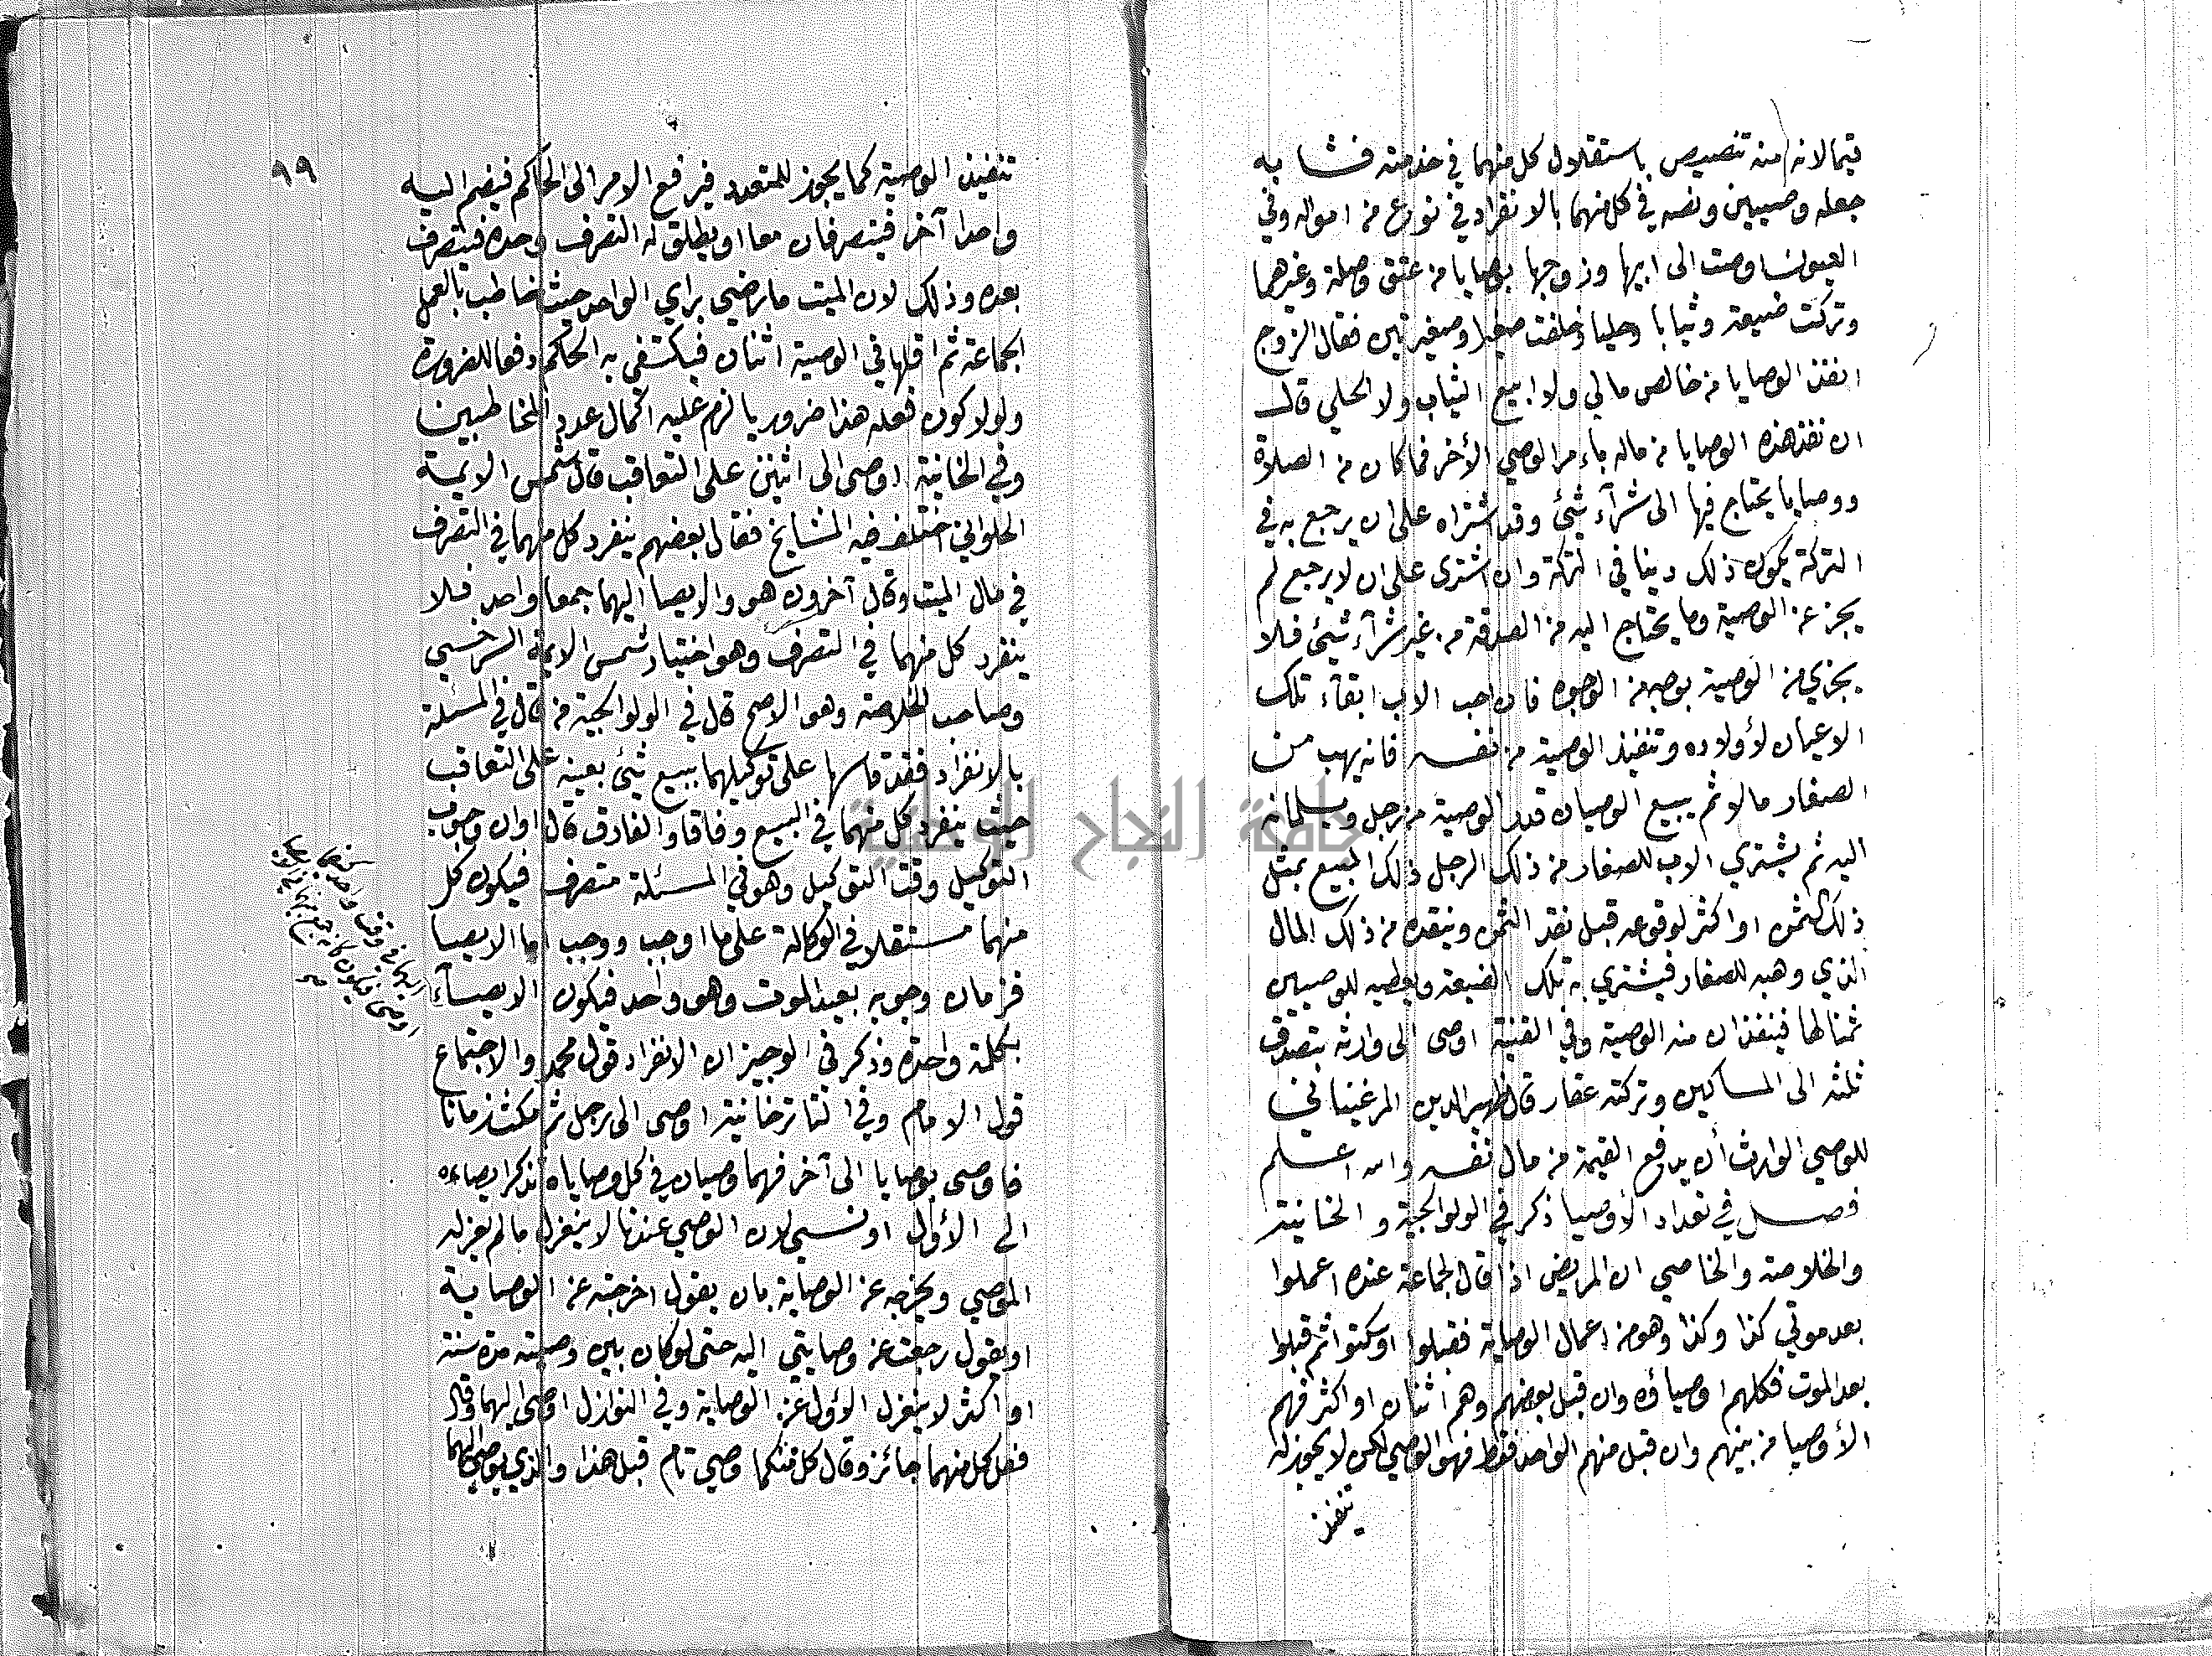 قيما لانه منه تنصيص باستقلال كل منهما في خدمته فشابه
جعله وصيين ونصه في كل منهما بالانفراد في نوع من امواله وفي
العيون اوصت الى ابيها وزوجها بوصايا من عتق وصلة وغيرهما
وتركت ضيعة وثيابا وحليا وخلفت صغيرا وصغيرتين فقال الزوج
انفذ الوصايا من خالص مالي ولا ابيع الثياب ولا الحلي قال
ان نفذ هذه الوصايا من ماله بامر الوصي الأخر فما كان من الصلاة
ووصايا يحتاج فيها الى شرآء شئ وقد اشتراه على ان يرجع به في
التركة يكون ذلك دينا في التركة وان اشترى على ان لا يرجع لم
يجز عن الوصية وما يحتاج اليه من الصدقة من غير شرآء شئ فلا
يجزي عن الوصية بوجه من الوجوه فان احب الاب ابقآء تلك
الاعيان لأولاده وتنفيذ الوصية من نفسه فانه يهب من
الصغار مالا ثم يبيع الوصيان قدر الوصية من رجل ويسلمانه
اليه ثم يشتري الاب للصغار من ذلك الرجل ذلك المبيع بمثل
ذلك الثمن او اكثر لوقوعه قبل نقد الثمن وينقده من ذلك المال
الذي وهبه للصغار فيشتري به تلك الضيعة ويعطيه للوصيين
ثمنا لها فينفذان منه الوصية وفي القنية اوصى الى وارثه بتصدق
ثلثه الى المساكين وتركته عقار قال ظهير الدين المرغيناني
للوصي الوارث أن يدفع القيمة من مال نفسه والله اعلم
فصل في تعداد الأوصيا ذكر في الولوالجية والخانية
والخلاصة والخاصي ان المريض اذا قال لجماعة عنده اعملوا
بعد موتي كذا وكذا وهو من اعمال الوصاية فقبلوا او سكتوا ثم قبلوا
بعد الموت فكلهم اوصياؤه وان قبل بعضهم وهم اثنان او اكثر فهم
الأوصيا من بينهم وان قبل منهم الواحد فقط فهو الوصي لكن لا يجوز له
تنفيذ
٩٩
تنفيذ الوصية كما يجوز للمتعدد فيرفع الامر الى الحاكم فيضم اليه
واحدا آخر فيتصرفان معا او يطلق له التصرف وحده فيتصرف
بعده وذلك لان الميت ما رضي براي الواحد حيث خاطب بالعمل
الجماعة ثم اقلها في الوصية اثنان فيكتفي به الحاكم دفعا للضرورة
ولولا كون فعله هذا ضروريا لزم عليه اكمال عدد المخاطبين
وفي الخانية اوصى الى اثنين على التعاقب قال شمس الايمة
الحلواني اختلف فيه المشايخ فقال بعضهم ينفرد كل منهما في التصرف
في مال الميت وقال آخرون هو والايصا اليهما جمعا واحد فلا
ينفرد كل منهما في التصرف وهو اختيار شمس الايمة السرخسي
وصاحب الخلاصة وهو الاصح قال في الولوالجية من قال في المسئلة
بالانفراد فقد قاسها على توكيلهما ببيع شئ بعينه على التعاقب
حيث ينفرد كل منهما في البيع وفاقا والفارق قال اوان وجوب
التوكيل وقت التوكيل وهو في المسئلة متصرف فيكون كل
منهما مستقلا في الوكالة على ما اوجب ووجب اما الايصا
فزمان وجوبه بعيد الموت وهو واحد فيكون الايصآء
بكلمة واحدة وذكر في الوجيز ان الانفراد قول محمد والاجتماع
قول الامام وفي التتارخانية اوصى الى رجل ثم مكث زمانا
فاوصى بوصايا الى آخر فهما وصيان في كل وصاياه تذكر ايصاءه
الى الأول او نسي لان الوصي عندنا لا ينعزل ما لم يعزله
الموصي ويخرجه عن الوصاية بان يقول اخرجته عن الوصاية
او يقول رجعت عن وصايتي اليه حتى لو كان بين وصيته مدة سنة
او اكثر لا ينعزل الأول عن الوصاية وفي النوازل اوصى اليهما وقال
فعل كل منهما جائز وقال كل منكما وصي تام قبل هذا والذي يوصي اليهما